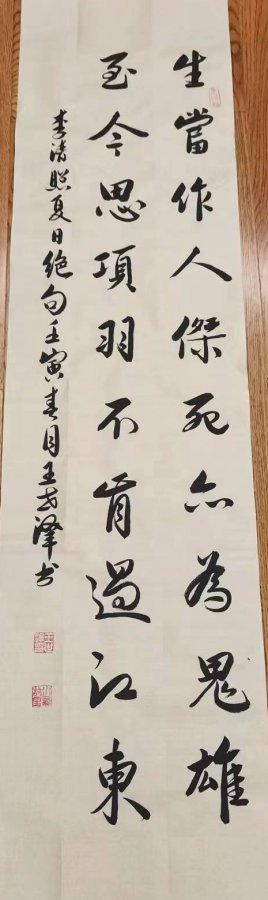 生當作人傑死亦為鬼雄
至今思項羽不肯過江東
李清照夏日绝句壬寅春月王書澤书